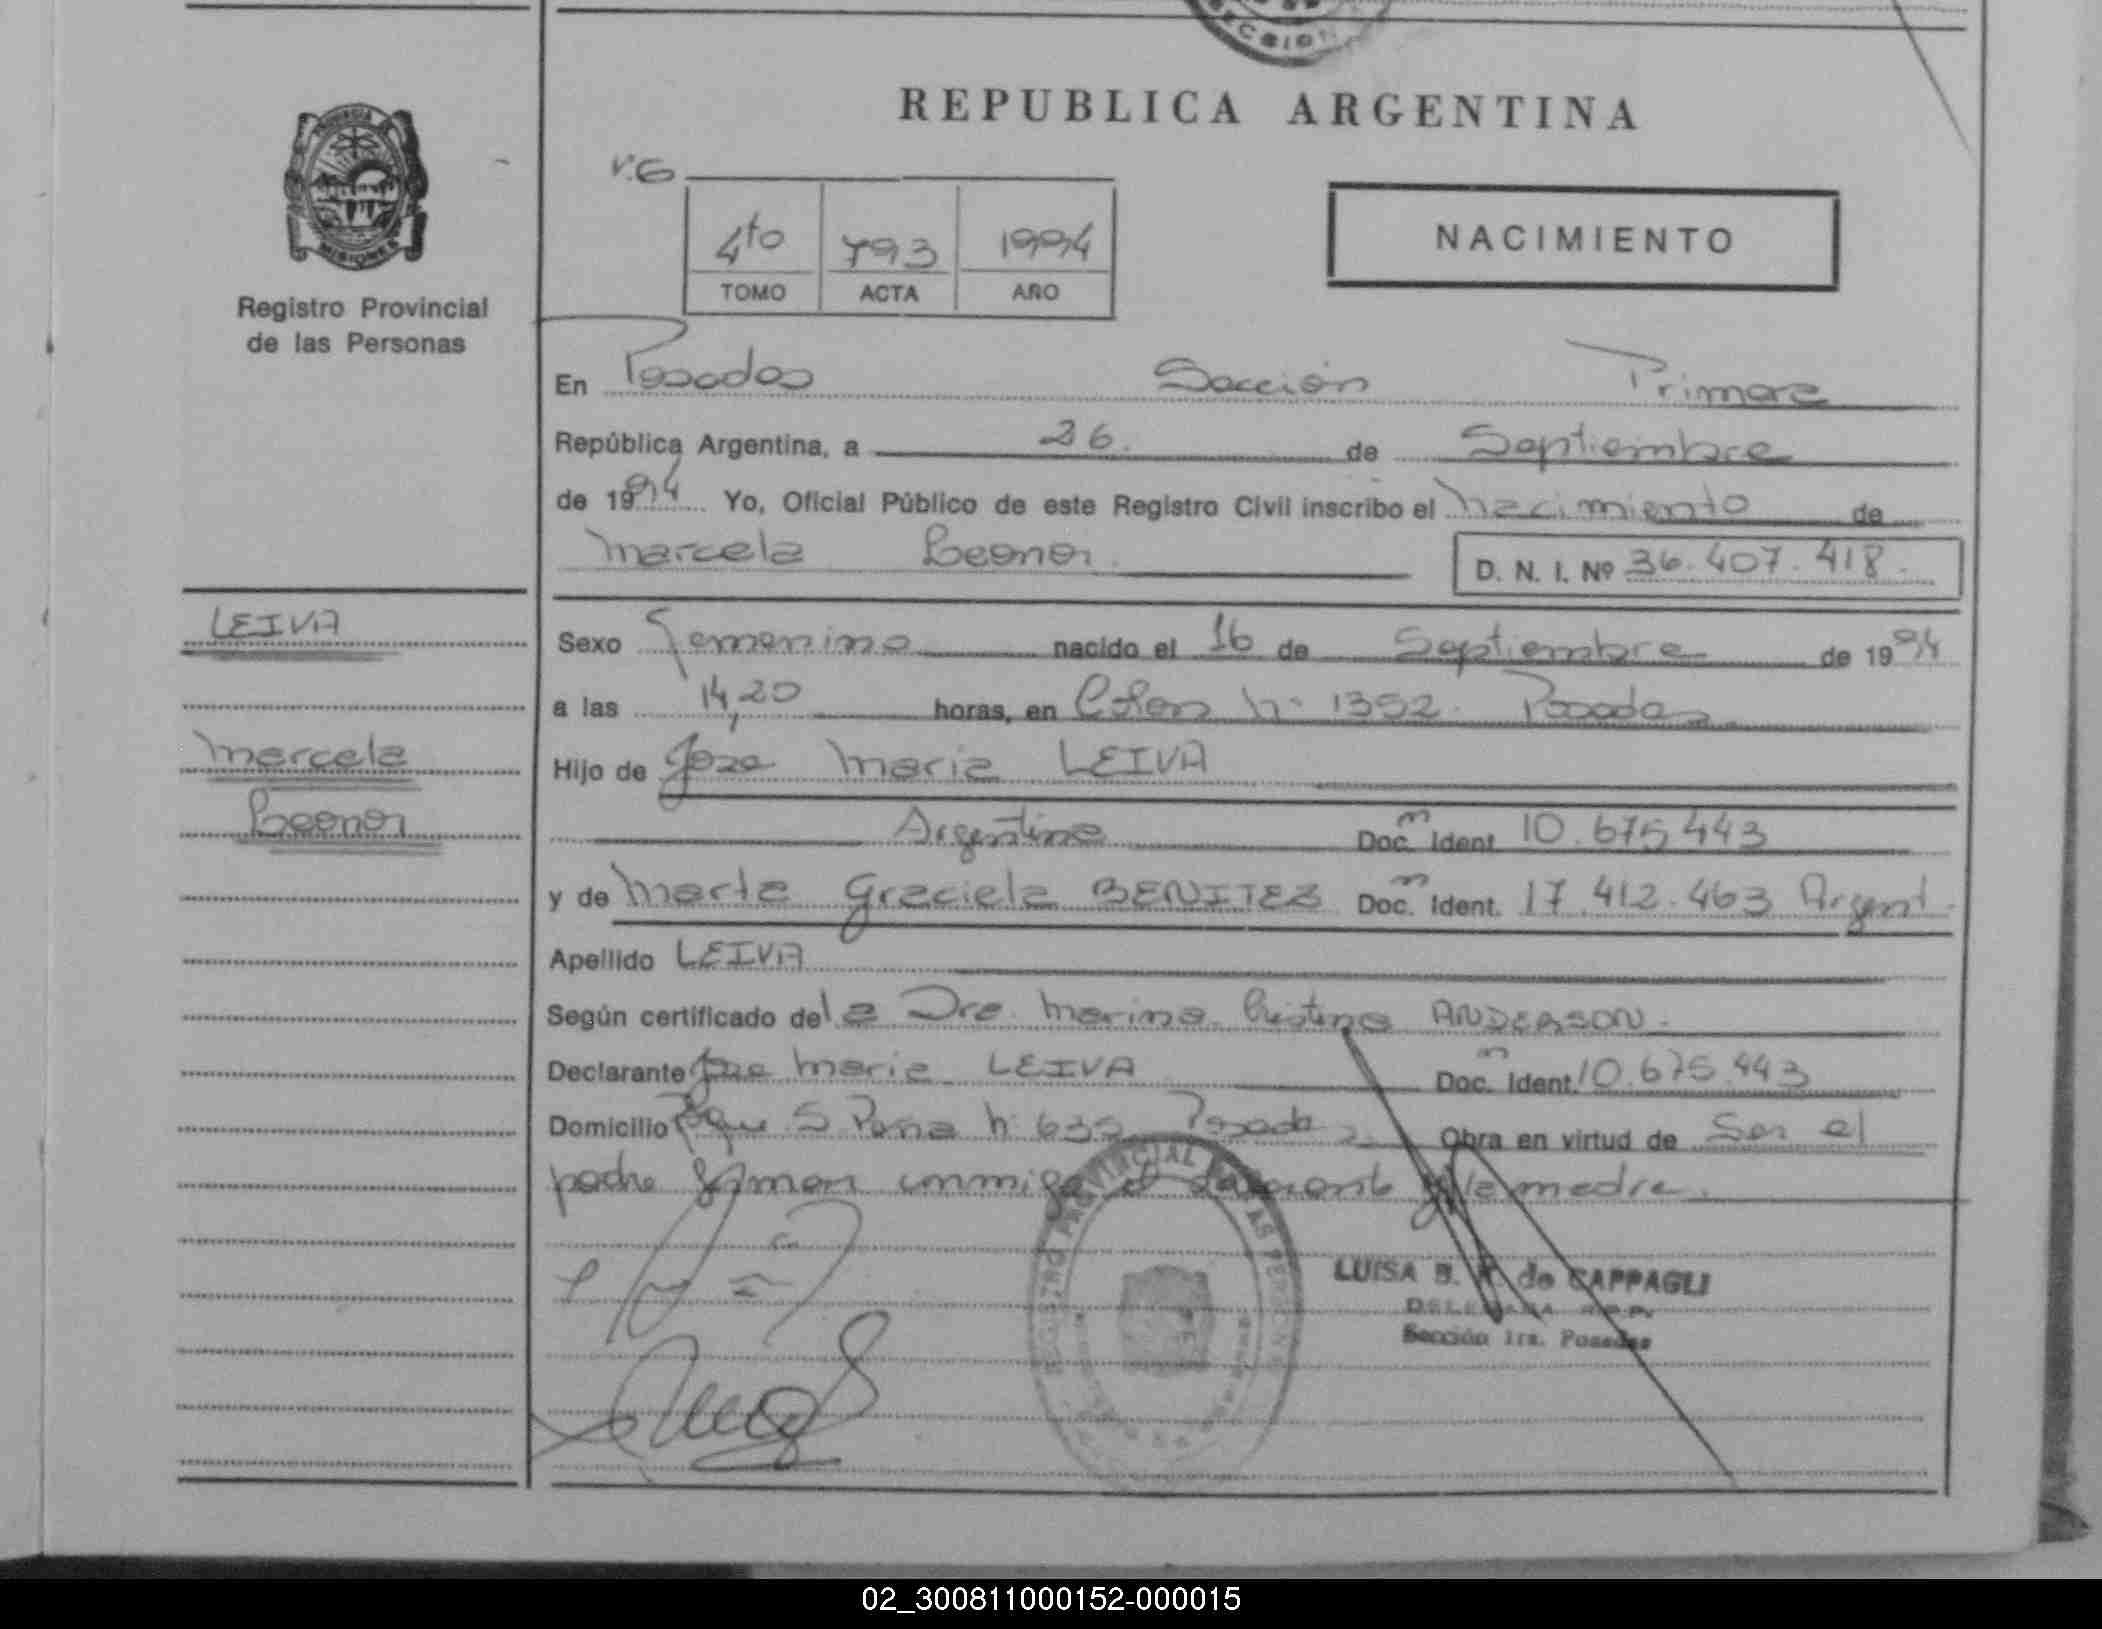 CCION
REPUBLICA ARGENTINA
PROVINCIA
MISIONES
Registro Provincial
de las Personas
4to 793 1994
TOMO ACTA AÑO
NACIMIENTO
En Posadas Sección Primera
República Argentina, a 26. de Septiembre
de 1994 Yo, Oficial Público de este Registro Civil inscribo el nacimiento de
Marcela Leonor D. N. I. Nº 36.407.418.
LEIVA
Marcela
Leonor
Sexo Femenino nacido el 16 de Septiembre de 1994
a las 14,20 horas, en Colon nº 1352. Posadas
Hijo de Jose Maria LEIVA
Argentino Doc. Ident. 10.675.443
y de Marta Graciela BENITEZ Doc. Ident. 17.412.463 Argent.
Apellido LEIVA
Según certificado de la Dra. Marina Cristina ANDERSON.
Declarante Jose Maria LEIVA Doc. Ident. 10.675.443
Domicilio Roque S. Peña nº Posadas Obra en virtud de Ser el
padre Firman conmigo el declarante y la madre.
REGISTRO PROVINCIAL DE LAS PERSONAS
LUISA B. de CAPPAGLI
DELEGADA R.P.P.
Sección 1ra. Posadas
02_300811000152-000015